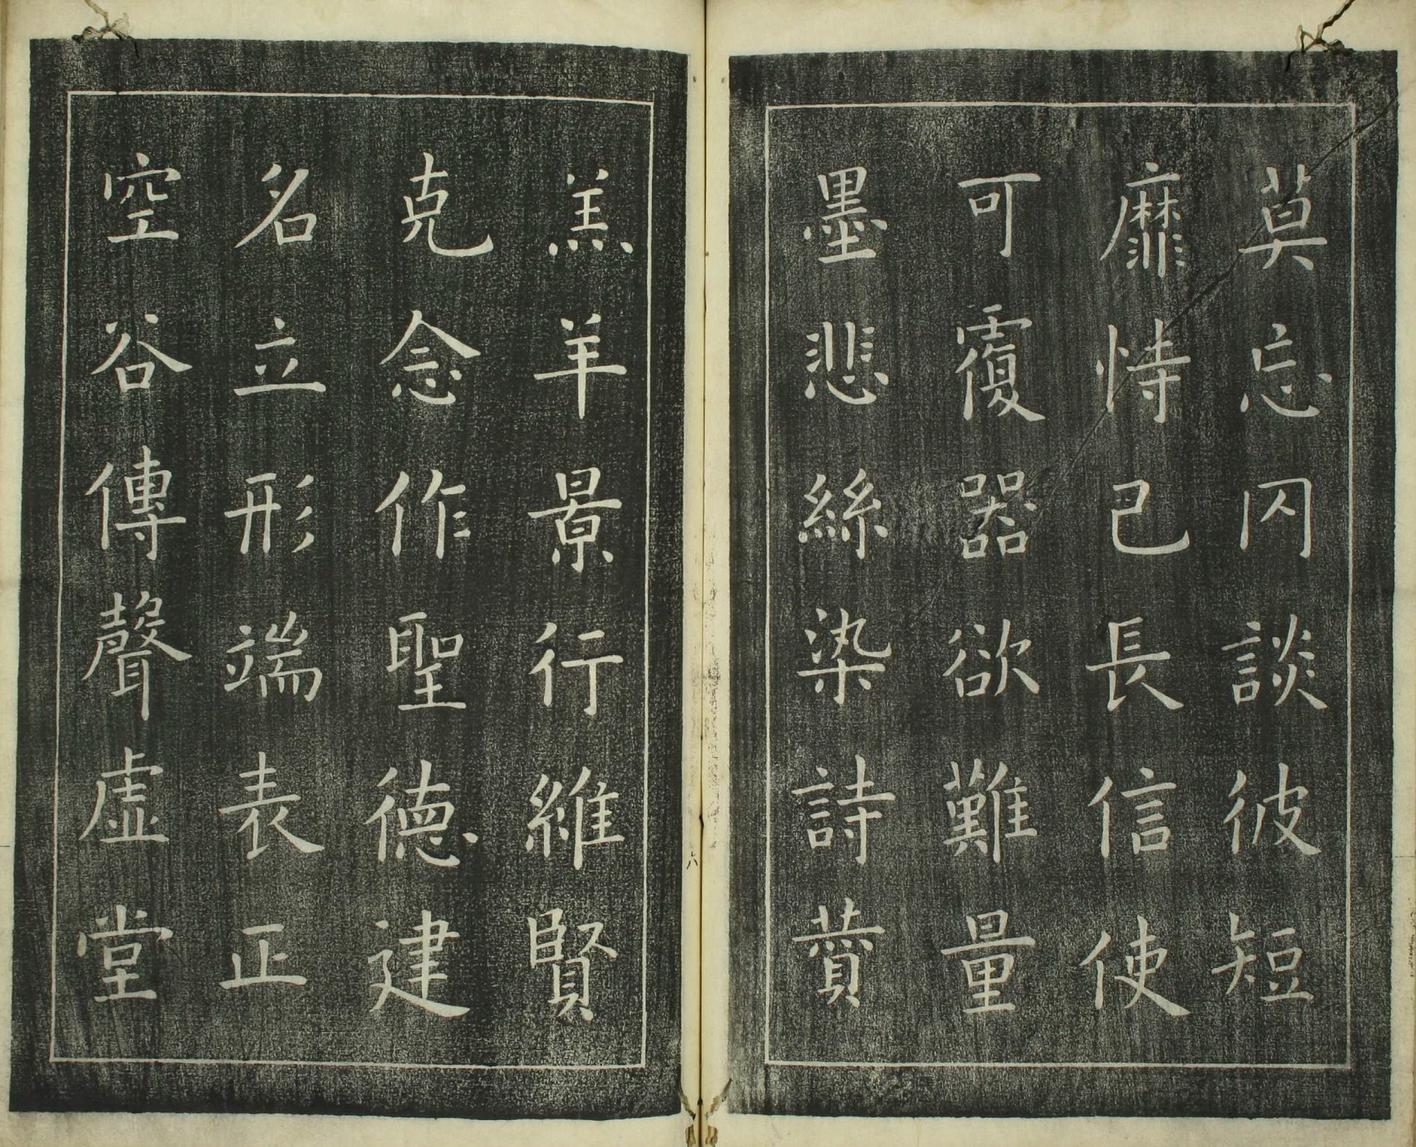 莫忘罔談彼短
靡恃己長信使
可覆器欲難量
墨悲絲染詩贊
羔羊景行維賢
克念作聖德建
名立形端表正
空谷傳聲虛堂
六